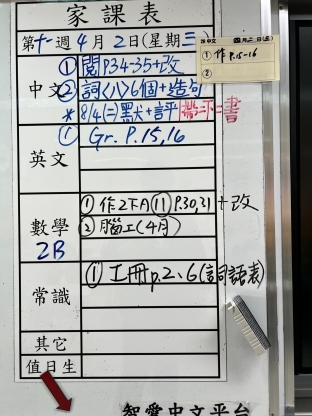 家課表
第十一週 4月2日(星期三)
中文
① 閱P34-35+改
② 詞〈八〉6個+造句
* 8/4(二)黑犬+評
① 作 P.15-16
②
英文
① Gr. P.15,16
數學
2B
① 作2下A ⑪ P.30,31+改
② 腦工(4月)
常識
① 工冊p.2、6(詞語表)
其它
值日生
智愛中文平台